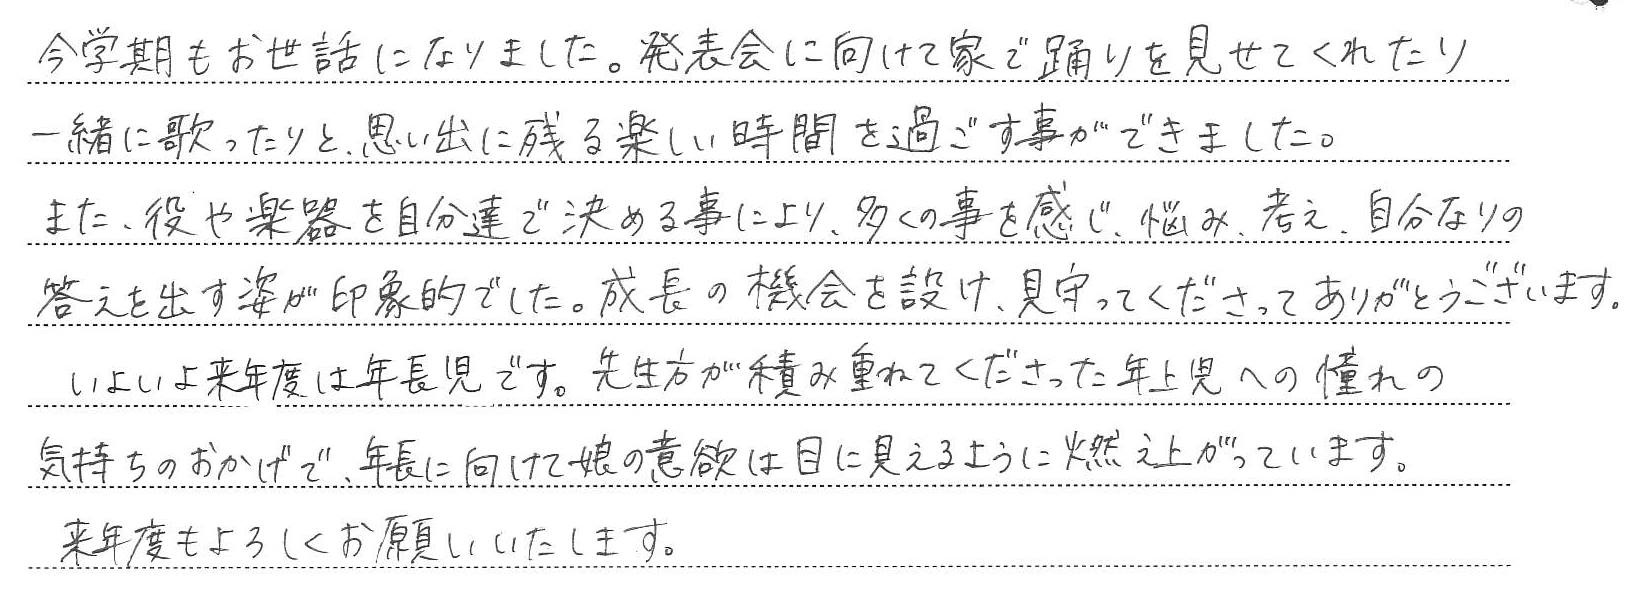 今学期もお世話になりました。発表会に向けて家で踊りを見せてくれたり
一緒に歌ったりと、思い出に残る楽しい時間を過ごす事ができました。
また、役や楽器を自分達で決める事により、多くの事を感じ、悩み、考え、自分なりの
答えを出す姿が印象的でした。成長の機会を設け、見守ってくださってありがとうございます。
いよいよ来年度は年長児です。先生方が積み重ねてくださった年上児への憧れの
気持ちのおかげで、年長に向けて娘の意欲は目に見えるように燃え上がっています。
来年度もよろしくお願いいたします。